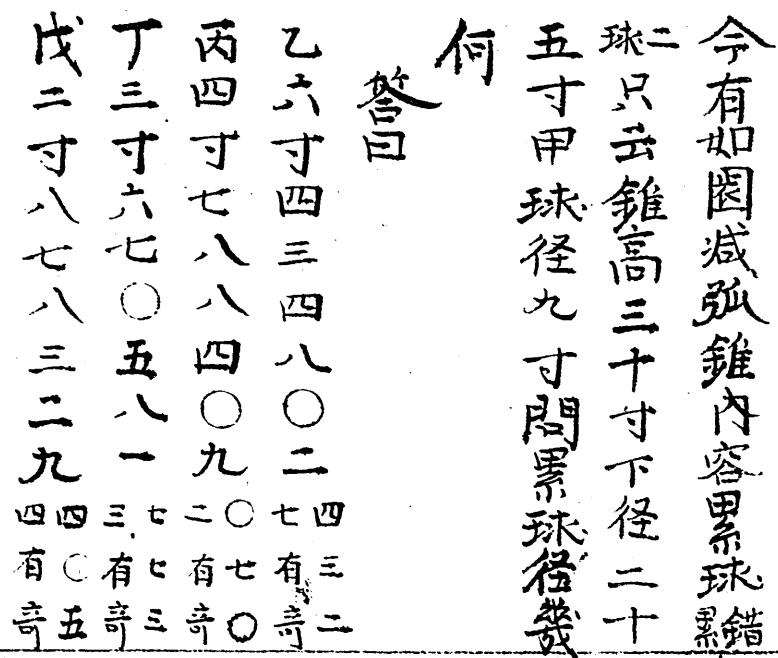 今有如圏减弧錐内容累球錯累
二球只云錐高三十寸下径二十
五寸甲球径九寸問累球径幾
何
答曰
乙六寸四三四八〇二四三二七有奇
丙四寸七八八四〇九〇七〇二有奇
丁三寸六七〇五八一七七三三有奇
戊二寸八七八三二九四〇五四有奇